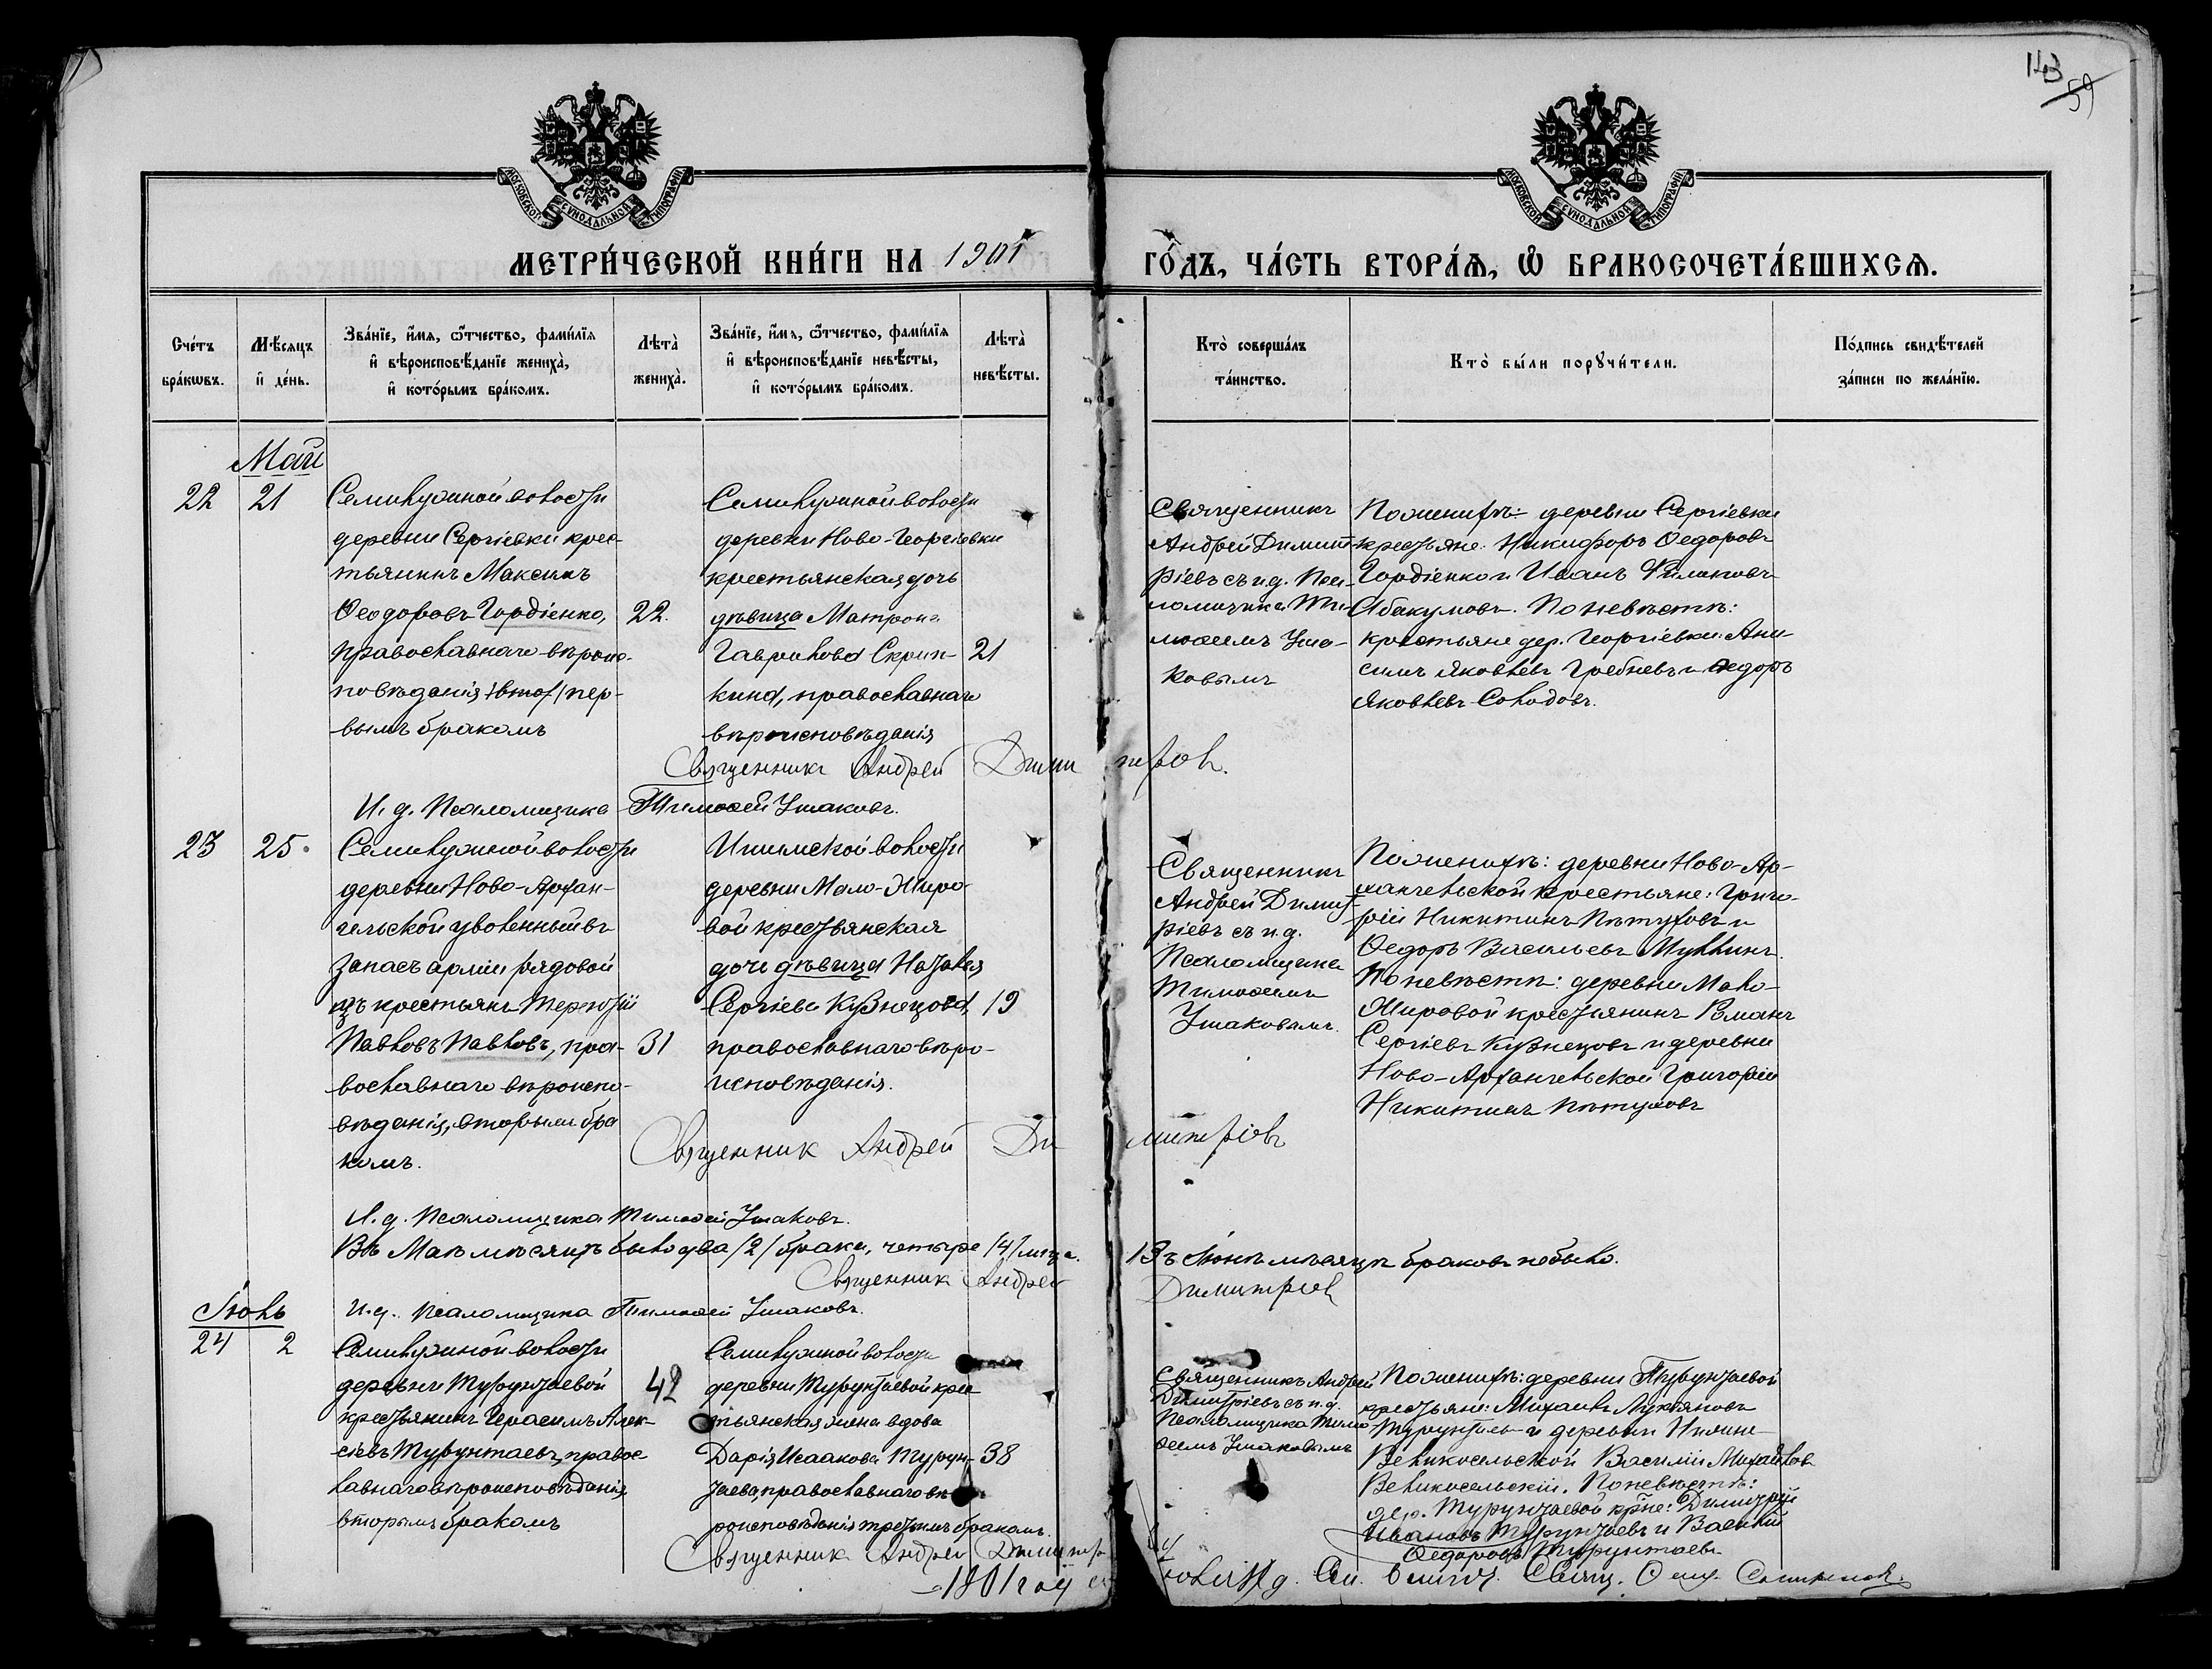 143
59
МОСКОВСКОЙ СѴНОДАЛЬНОЙ ТИПОГРАФІИ
МОСКОВСКОЙ СѴНОДАЛЬНОЙ ТИПОГРАФІИ
МЕТРИ́ЧЕСКОЙ КНИ́ГИ НА 1901
ГО́ДЪ, ЧА́СТЬ ВТОРА́Ѧ, Ѽ БРАКОСОЧЕТА́ВШИХСѦ.
Сче́тъ бра́кѡвъ.
Мѣ́сяцъ и де́нь.
Зва́нїе, и́мѧ, ѻ҆́тчество, фами́лїѧ
и҆ вѣроисповѣ́данїе жениха̀,
и҆ кото́рымъ бра́комъ.
Лѣта̀ жениха̀.
Зва́нїе, и́мѧ, ѻ҆́тчество, фами́лїѧ
и҆ вѣроисповѣ́данїе невѣ́сты,
и҆ кото́рымъ бра́комъ.
Лѣта̀ невѣ́сты.
Кто̀ соверша́лъ та́инство.
Кто̀ бы́ли порꙋчи́тели.
По́дпись свидѣ́телей
за́писи по жела́нїю.
Май
22 21
Семилужной волости
деревни Сергіевки крес-
тьянинъ Максимъ
Ѳеодоровъ Гордіенко,
православнаго вѣроис-
повѣданія, пер-
вымъ бракомъ
22.
Семилужной волости
деревни Ново-Георгіевки
крестьянская дочь
дѣвица Матрона
Гаврилова Скрип-
кина, православнаго
вѣроисповѣданія
21
Священникъ
Андрей Димит-
ріевъ съ и.д. Пса-
ломщика Ти-
моѳеемъ Уша-
ковымъ
По женихѣ: деревни Сергіевки
крестьяне: Никифоръ Ѳедоровъ
Гордіенко и Иванъ Филиповъ
Абакумовъ. По невѣстѣ:
крестьяне дер. Георгіевки: Ани-
симъ Яковлевъ Гребневъ и Ѳедоръ
Яковлевъ Солодовъ.
Священникъ Андрей Димитров.
И. д. Псаломщика Тимоѳей Ушаковъ.
23 25
Семилужной волости
деревни Ново-Архан-
гельской уволенный въ
запасъ арміи рядовой
изъ крестьянъ Терентій
Павловъ Павловъ, пра-
вославнаго вѣроиспо-
вѣданія, вторымъ бра
комъ.
31
Ишимской волости
деревни Мало-Жиро-
вой крестьянская
дочь дѣвица Наталья
Сергіева Кузнецова,
православнаго вѣро-
исповѣданія.
19
Священникъ
Андрей Димит-
ріевъ съ и.д.
Псаломщика
Тимоѳеемъ
Ушаковымъ.
По женихѣ: деревни Ново-Ар-
хангельской крестьяне: Григо-
рій Никитинъ Пѣтуховъ и
Ѳедоръ Васильевъ Муллинъ.
По невѣстѣ: деревни Мало-
Жировой крестьянинъ Романъ
Сергіевъ Кузнецовъ и деревни
Ново-Архангельской Григорій
Никитинъ Пѣтуховъ
Священник Андрей Димитріевъ
И. д. Псаломщика Тимоѳей Ушаковъ.
Въ Маѣ мѣсяцѣ было два /2/ брака, четыре /4/ лица.
Въ Іюнѣ мѣсяцѣ браковъ не было.
Священник Андрей Димитріев
И. д. Псаломщика Тимоѳей Ушаковъ.
Іюль
24 2
Семилужной волости
деревни Турунтаевой
крестьянинъ Герасимъ Алек-
сіевъ Турунтаевъ, правос-
лавнаго вѣроисповѣданія
вторымъ бракомъ
42
Семилужной волости
деревни Турунтаевой крес-
тьянская жена вдова
Дарія Исаакова Турун-
таева, православнаго вѣ-
роисповѣданія третьимъ бракомъ.
38
Священникъ Андрей
Димитріевъ съ и.д.
Псаломщика Тимо-
ѳеемъ Ушаковымъ
По женихѣ: деревни Турунтаевой
крестьяне: Михаилъ Лукіановъ
и деревни
Великосельской Василій Михайлов
Великосельскій. По невѣстѣ:
дер. Турунтаевой кр-не: Димитрій
Ивановъ Турунтаевъ и Василій
Ѳедоровъ Турунтаевъ
Священника Андрей Димитр
1901 год